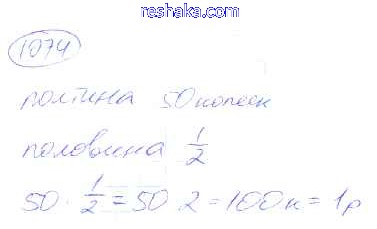 reshaka.com
1074
полтина 50 копеек
половина 1/2
50 · 1/2 = 50 2 = 100 к = 1 р